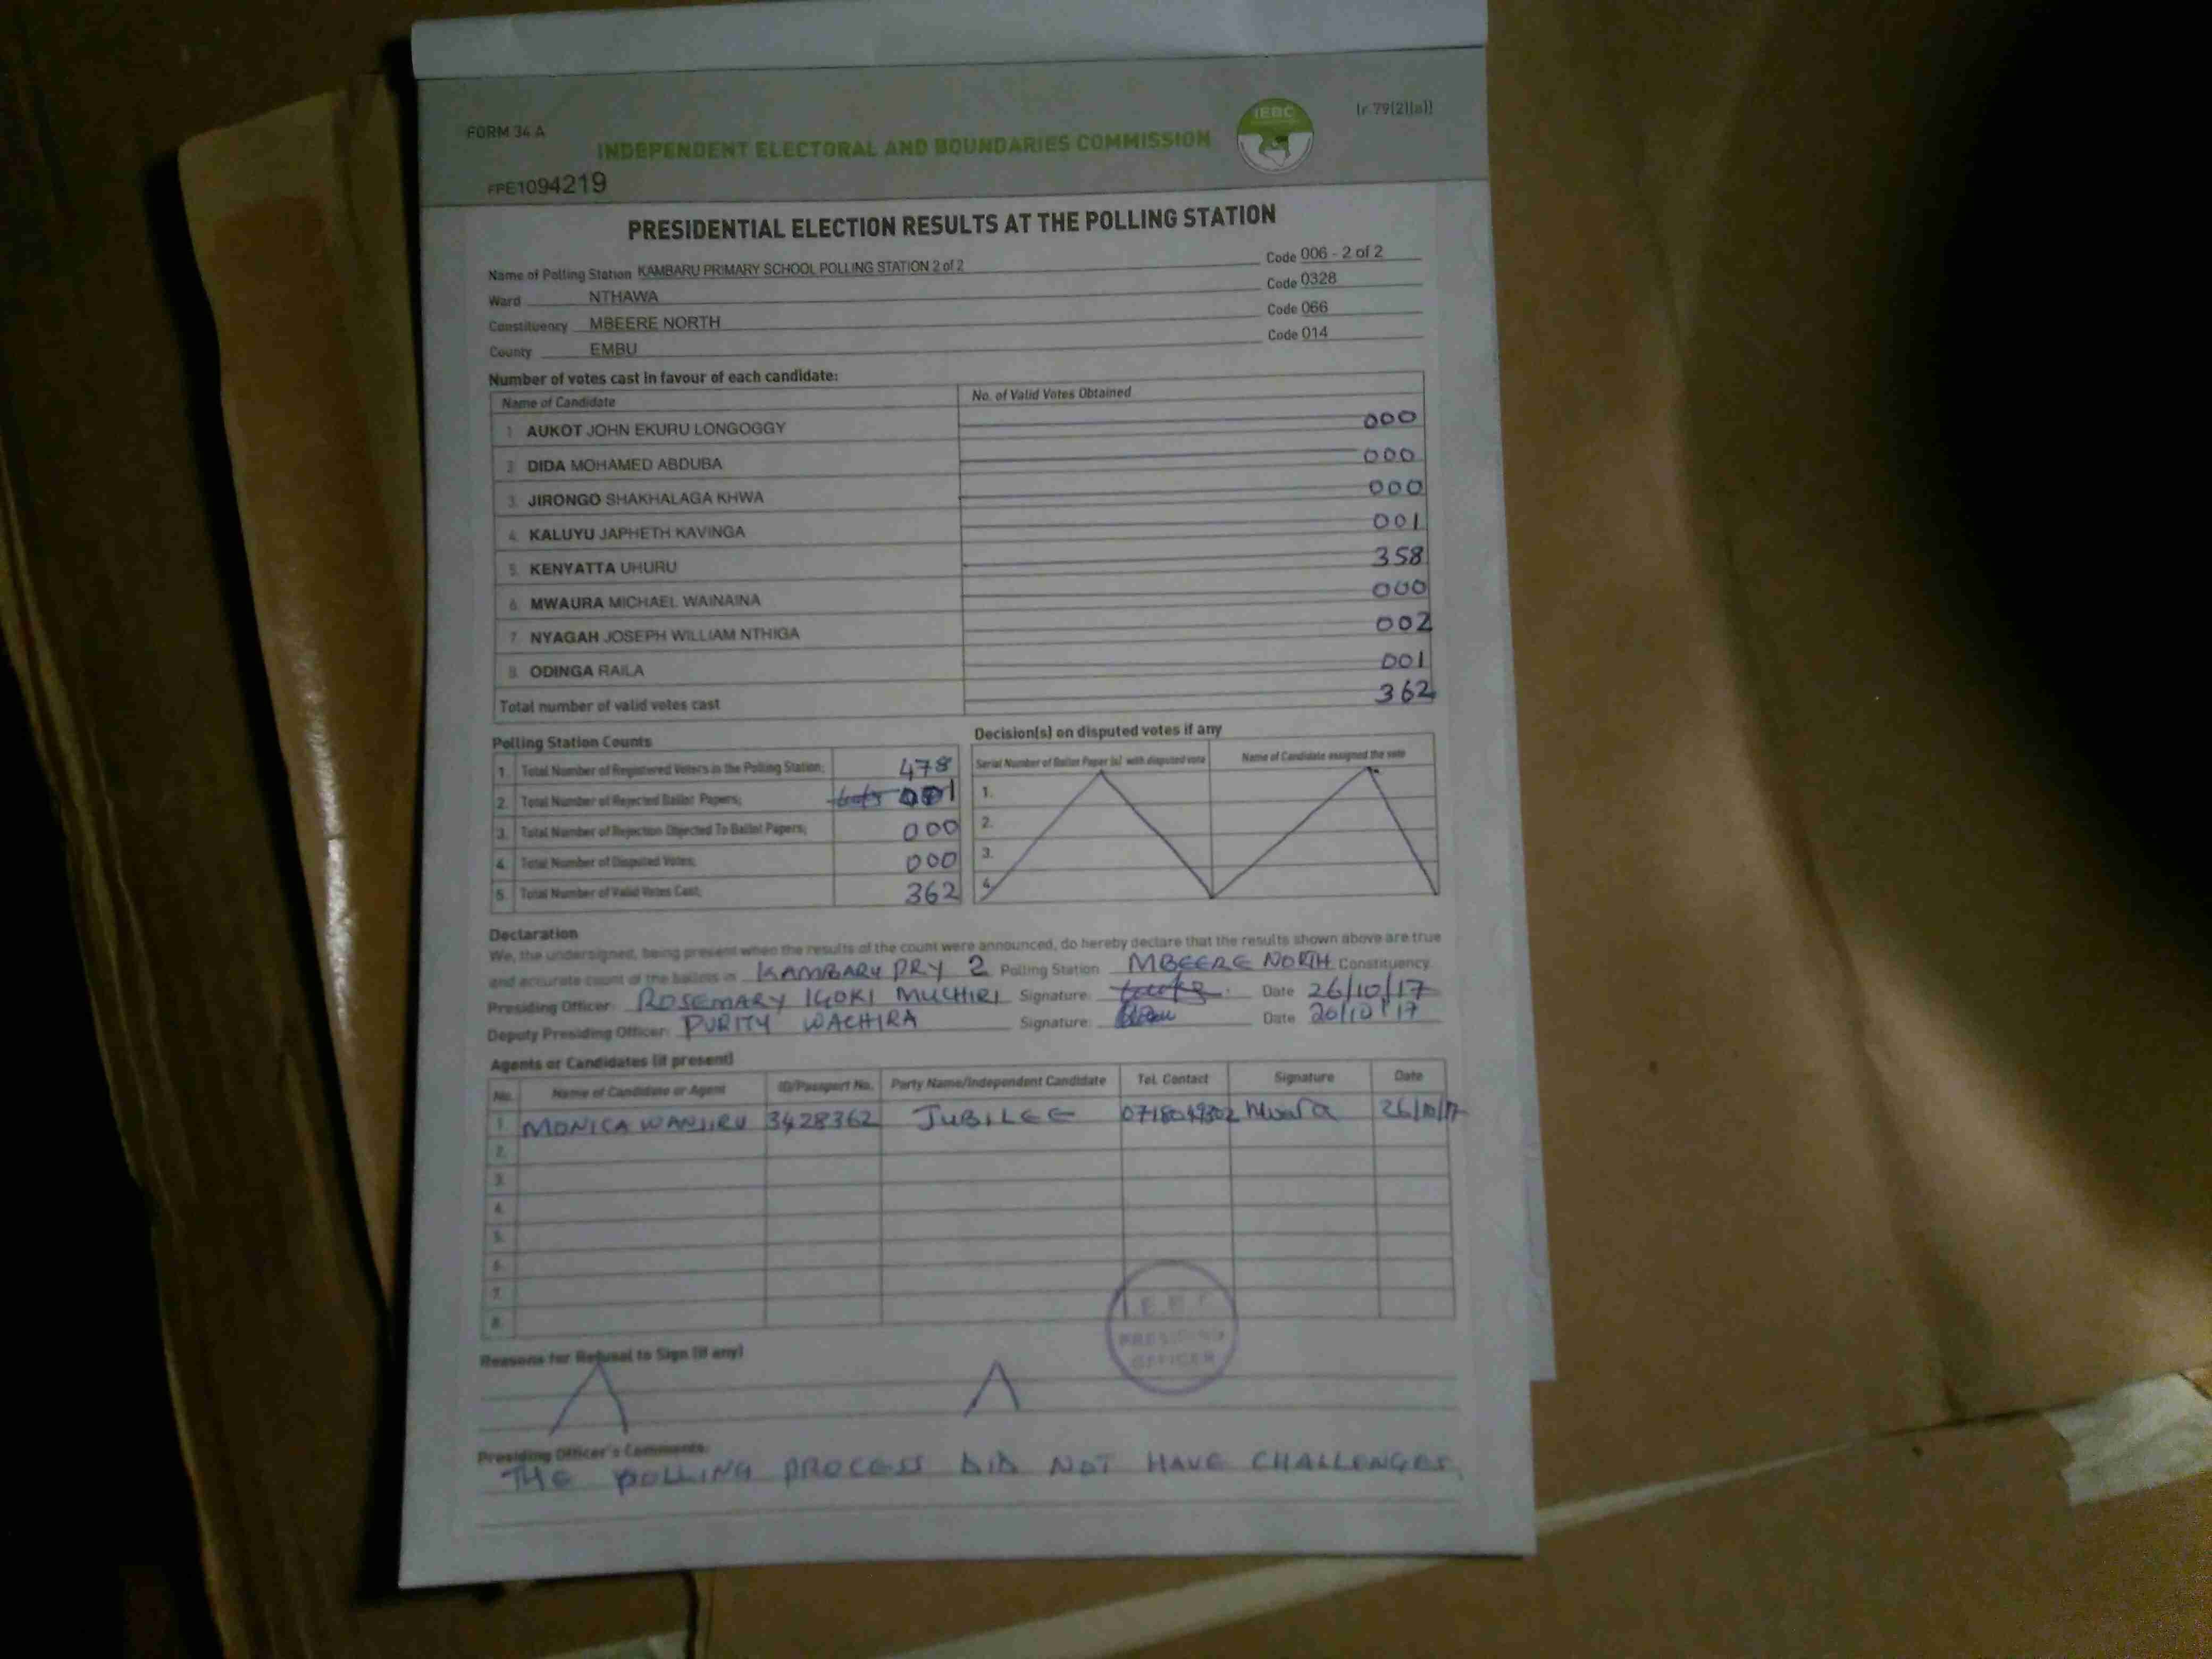 FORM 34 A
IEBC
(r.79(2)(a))
INDEPENDENT ELECTORAL AND BOUNDARIES COMMISSION
FPE1094219
PRESIDENTIAL ELECTION RESULTS AT THE POLLING STATION
Name of Polling Station KAMBARU PRIMARY SCHOOL POLLING STATION 2 of 2 Code 006 - 2 of 2
Ward NTHAWA Code 0328
Constituency MBEERE NORTH Code 066
County EMBU Code 014
Number of votes cast in favour of each candidate:
Name of Candidate No. of Valid Votes Obtained
1. AUKOT JOHN EKURU LONGOGGY 000
2. DIDA MOHAMED ABDUBA 000
3. JIRONGO SHAKHALAGA KHWA 000
4. KALUYU JAPHETH KAVINGA 001
5. KENYATTA UHURU 358
6. MWAURA MICHAEL WAINAINA 000
7. NYAGAH JOSEPH WILLIAM NTHIGA 002
8. ODINGA RAILA 001
Total number of valid votes cast 362
Polling Station Counts
1. Total Number of Registered Voters in the Polling Station; 478
2. Total Number of Rejected Ballot Papers; 001
3. Total Number of Rejection Objected To Ballot Papers; 000
4. Total Number of Disputed Votes; 000
5. Total Number of Valid Votes Cast; 362
Decision(s) on disputed votes if any
Serial Number of Ballot Paper (s) with disputed vote Name of Candidate assigned the vote
1.
2.
3.
4.
Declaration
We, the undersigned, being present when the results of the count were announced, do hereby declare that the results shown above are true
and accurate count of the ballots in KAMBARU PRY 2 Polling Station MBEERE NORTH Constituency
Presiding Officer: ROSEMARY IGOKI MUCHIRI Signature: Date 26/10/17
Deputy Presiding Officer: PURITY WACHIRA Signature: Date 26/10/17
Agents or Candidates (if present)
No. Name of Candidate or Agent ID/Passport No. Party Name/Independent Candidate Tel. Contact Signature Date
1. MONICA WANJIRU 3428362 JUBILEE 0718049302 26/10/17
2.
3.
4.
5.
6.
7.
8.
PRESIDING
OFFICER
Reasons for Refusal to Sign (if any)
Presiding Officer's Comments:
THE POLLING PROCESS DID NOT HAVE CHALLENGES.